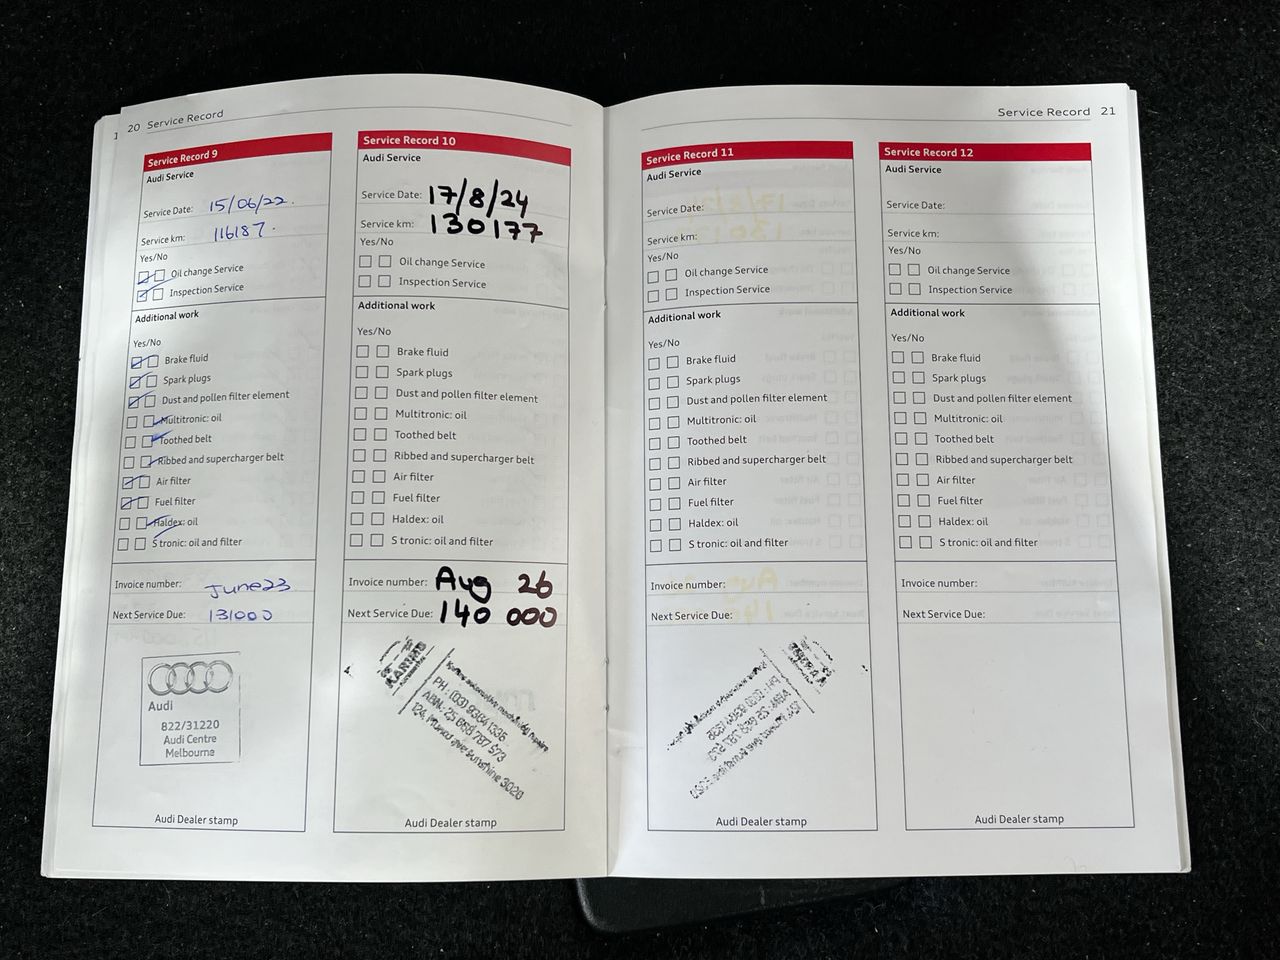 20 Service Record
Service Record 9
Audi Service
Service Date: 15/06/22.
Service km: 116187.
Yes/No
Oil change Service
Inspection Service
Additional work
Yes/No
Brake fluid
Spark plugs
Dust and pollen filter element
Multitronic: oil
Toothed belt
Ribbed and supercharger belt
Air filter
Fuel filter
Haldex: oil
S tronic: oil and filter
Invoice number: June23
Next Service Due: 131000
Audi
822/31220
Audi Centre
Melbourne
Audi Dealer stamp
Service Record 10
Audi Service
Service Date: 17/8/24
Service km: 130177
Yes/No
Oil change Service
Inspection Service
Additional work
Yes/No
Brake fluid
Spark plugs
Dust and pollen filter element
Multitronic: oil
Toothed belt
Ribbed and supercharger belt
Air filter
Fuel filter
Haldex: oil
S tronic: oil and filter
Invoice number: Aug 26
Next Service Due: 140 000
automotive mechanical repairs
PH : (03) 9364 1335
ABN: 25 658 787 573
sunshine 3020
Audi Dealer stamp
Service Record 21
Service Record 11
Audi Service
Service Date:
Service km:
Yes/No
Oil change Service
Inspection Service
Additional work
Yes/No
Brake fluid
Spark plugs
Dust and pollen filter element
Multitronic: oil
Toothed belt
Ribbed and supercharger belt
Air filter
Fuel filter
Haldex: oil
S tronic: oil and filter
Invoice number:
Next Service Due:
Audi Dealer stamp
Service Record 12
Audi Service
Service Date:
Service km:
Yes/No
Oil change Service
Inspection Service
Additional work
Yes/No
Brake fluid
Spark plugs
Dust and pollen filter element
Multitronic: oil
Toothed belt
Ribbed and supercharger belt
Air filter
Fuel filter
Haldex: oil
S tronic: oil and filter
Invoice number:
Next Service Due:
Audi Dealer stamp